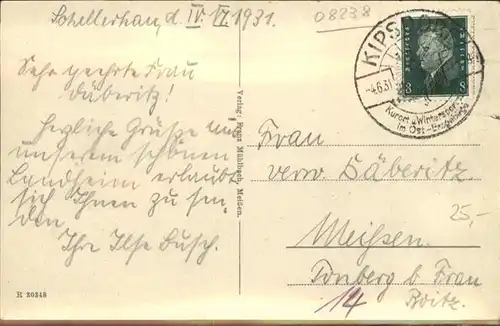 Schellerhau, d. IV. VI. 1931.
08238
Sehr geehrte Frau
Däberitz!
Herzliche Grüße aus
unserem schönen
Landheim erlaubt
sich Ihnen zu sen-
den
Ihre Ilse Busch.
R 20348
Verlag: Franz Mühlbach, Meißen.
KIPS
-4.6.31
Kurort u. Wintersport
im Ost-Erzgebirge
8 8
Frau
verw. Däberitz
25,-
Meißen
Tonberg b Frau
14